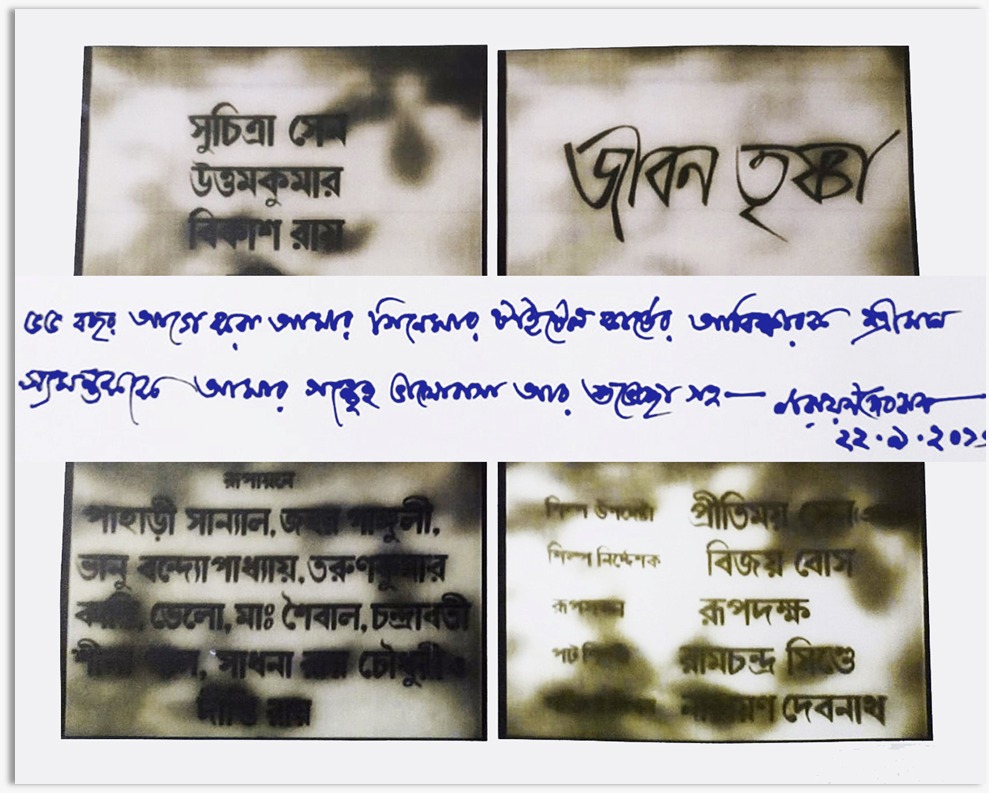 সুচিত্রা সেন
উত্তমকুমার
বিকাশ রায়
জীবন তৃষ্ণা
৫৫ বছর আগে করা আমার সিনেমার টাইটেল কার্ডের আবিষ্কারক শ্রীমান
স্যমন্তককে আমার সস্নেহ ভালোবাসা আর শুভেচ্ছা সহ—
নারায়ণ দেবনাথ
রূপায়নে
পাহাড়ী সান্যাল, জহর গাঙ্গুলী,
ভানু বন্দ্যোপাধ্যায়, তরুণকুমার
ভেলো, মাঃ শৈবাল, চন্দ্রাবতী
সাধনা রায় চৌধুরী
দীপ্তি রায়
শিল্প উপদেষ্টা প্রীতিময় সেন
শিল্প নির্দ্দেশক বিজয় বোস
রূপসজ্জা রূপদক্ষ
পট রামচন্দ্র সিণ্ডে
নারায়ণ দেবনাথ